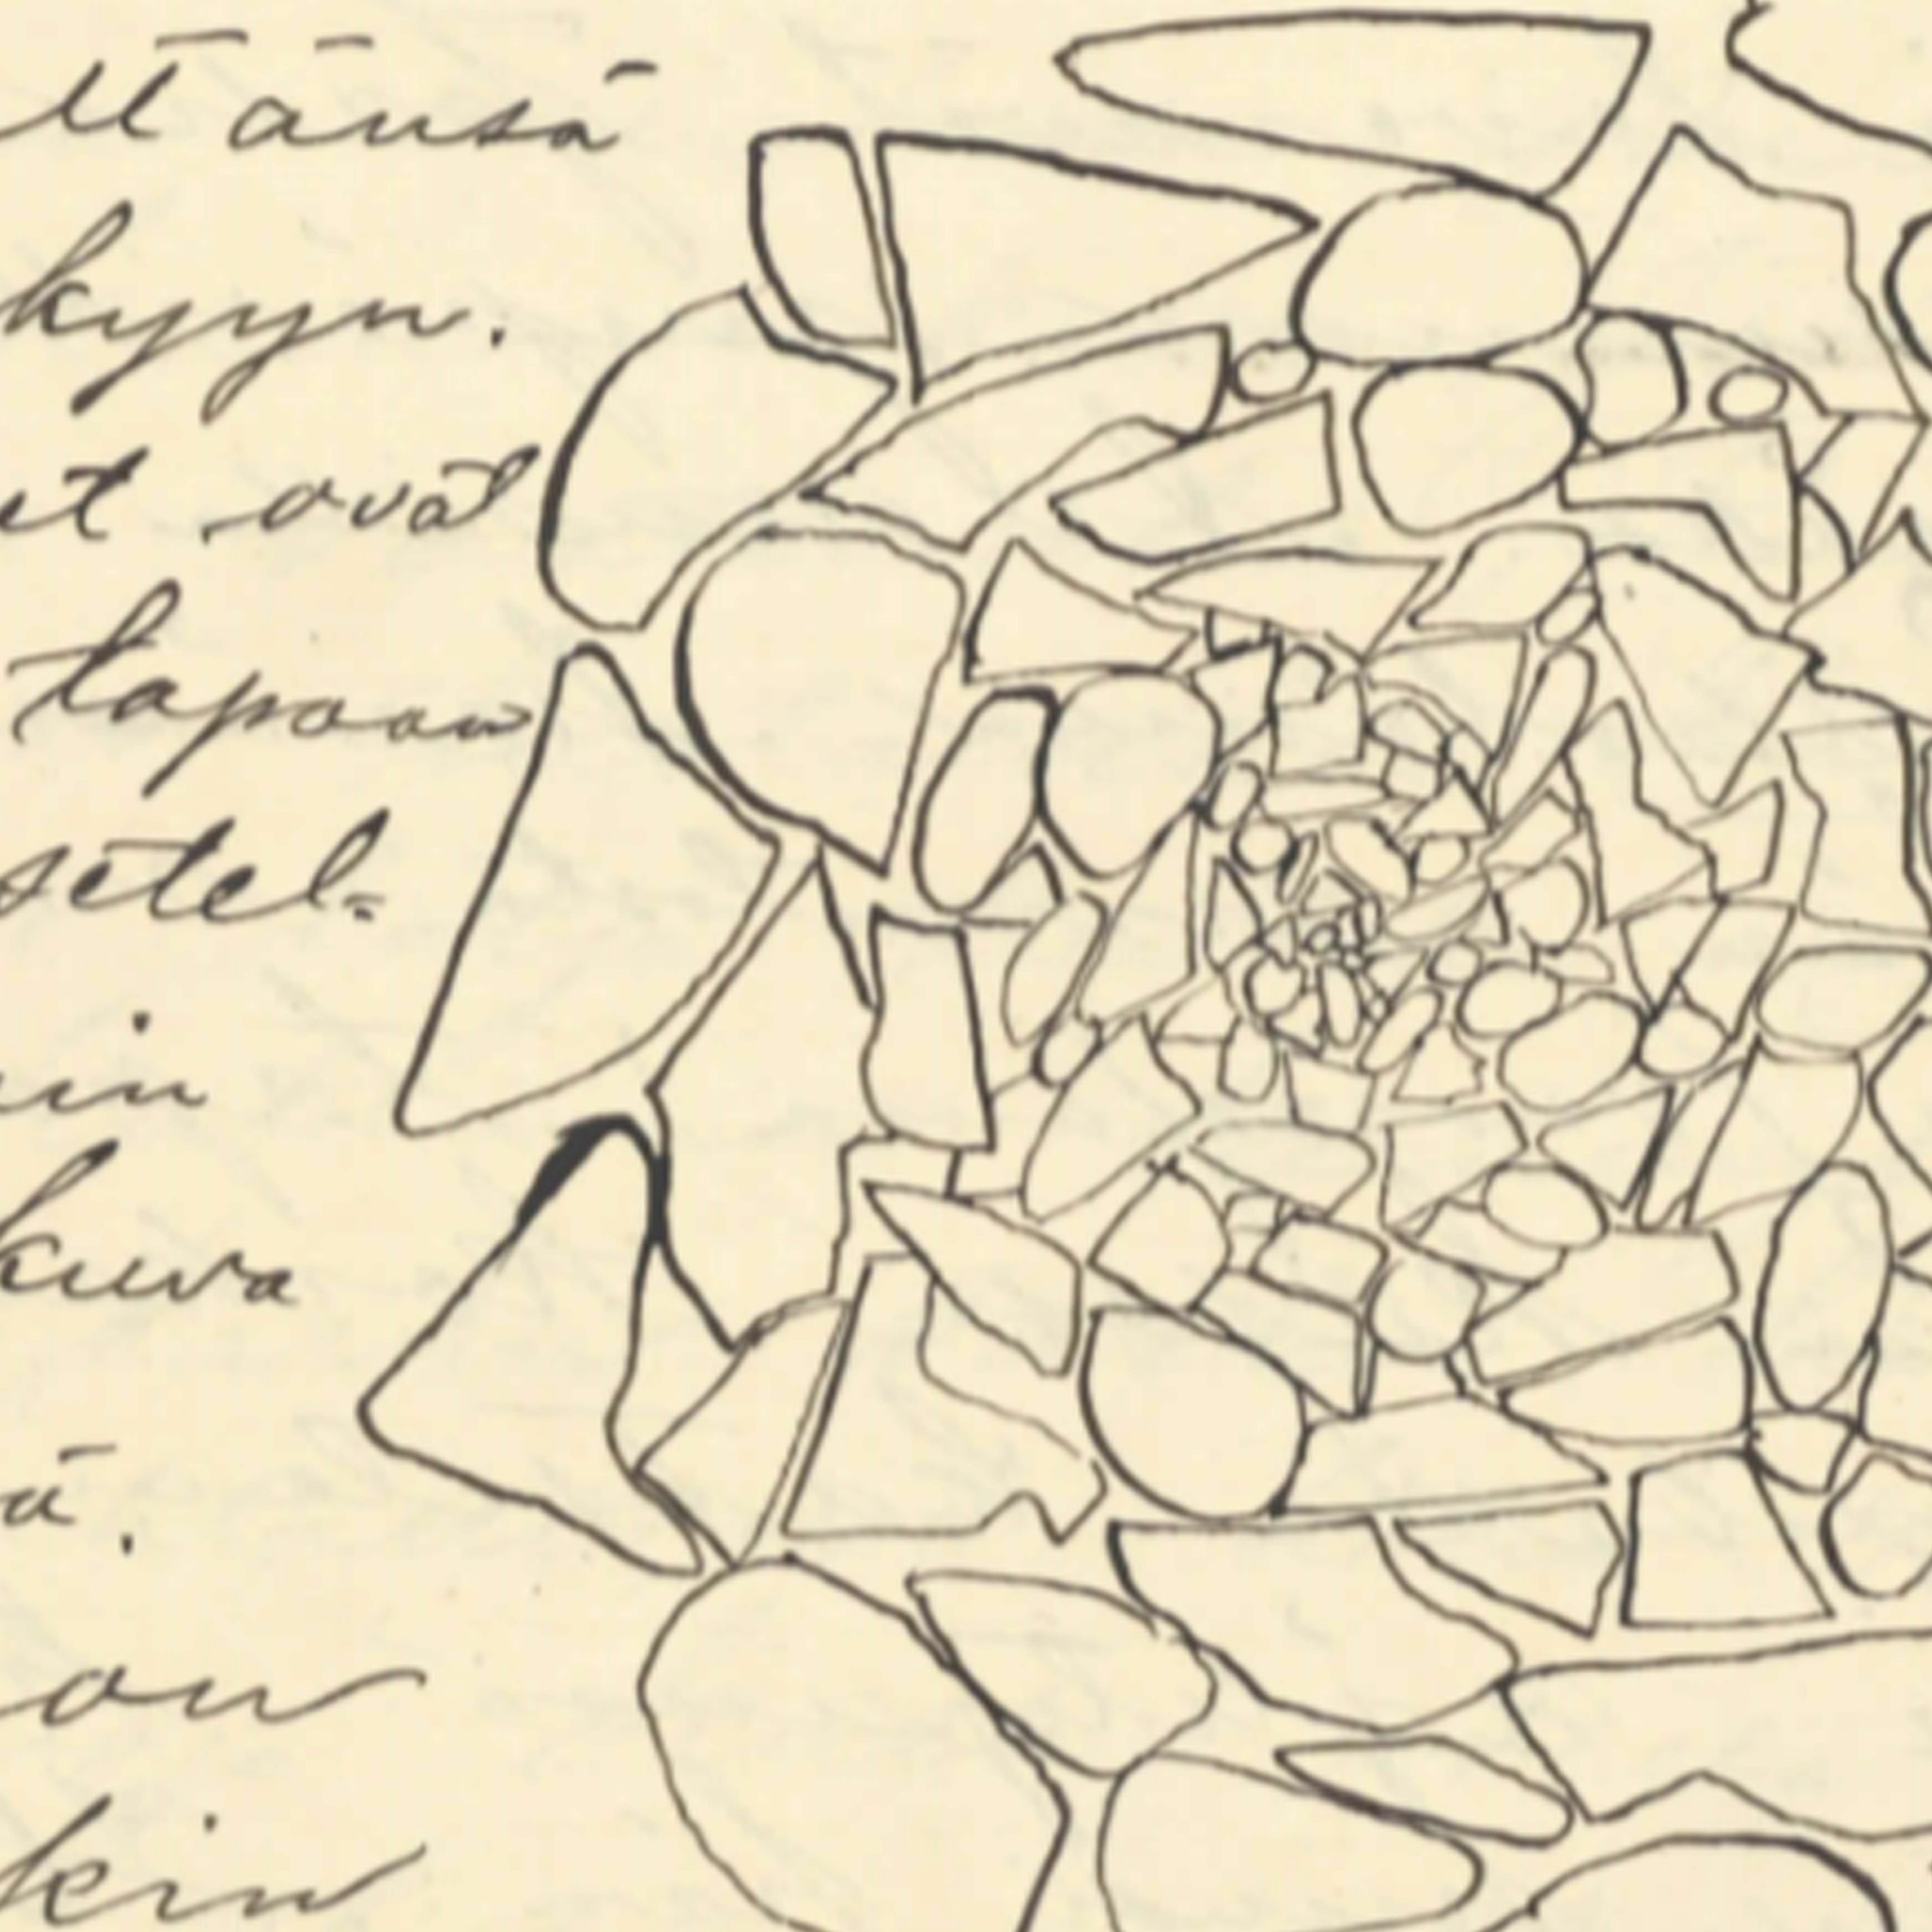 ttänsä
kyyn.
et ovat
tapaan
setel-
in
kuva
ä.
on
kin